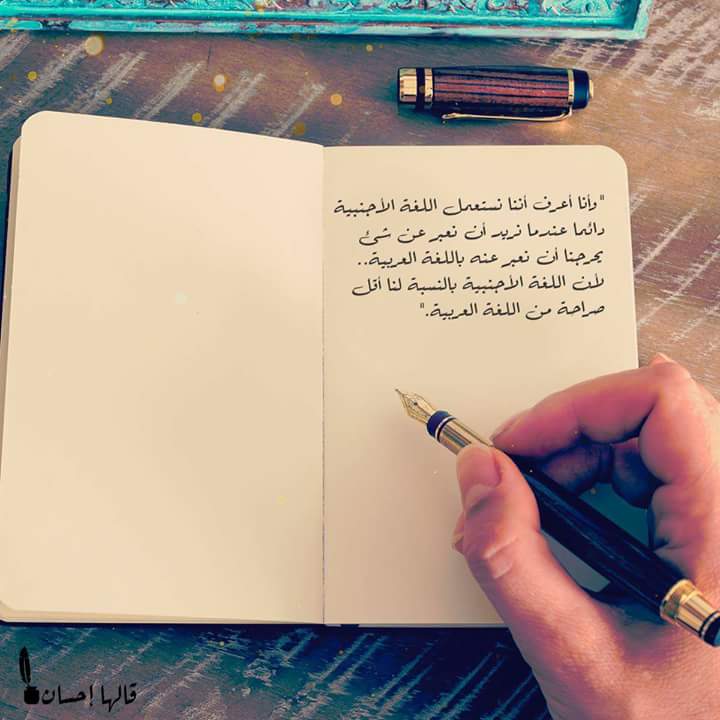 "وأنا أعرف أننا نستعمل اللغة الأجنبية
دائما عندما نريد أن نعبر عن شئ
يحرجنا أن نعبر عنه باللغة العربية..
لأن اللغة الأجنبية بالنسبة لنا أقل
صراحة من اللغة العربية."
قالها إحسان